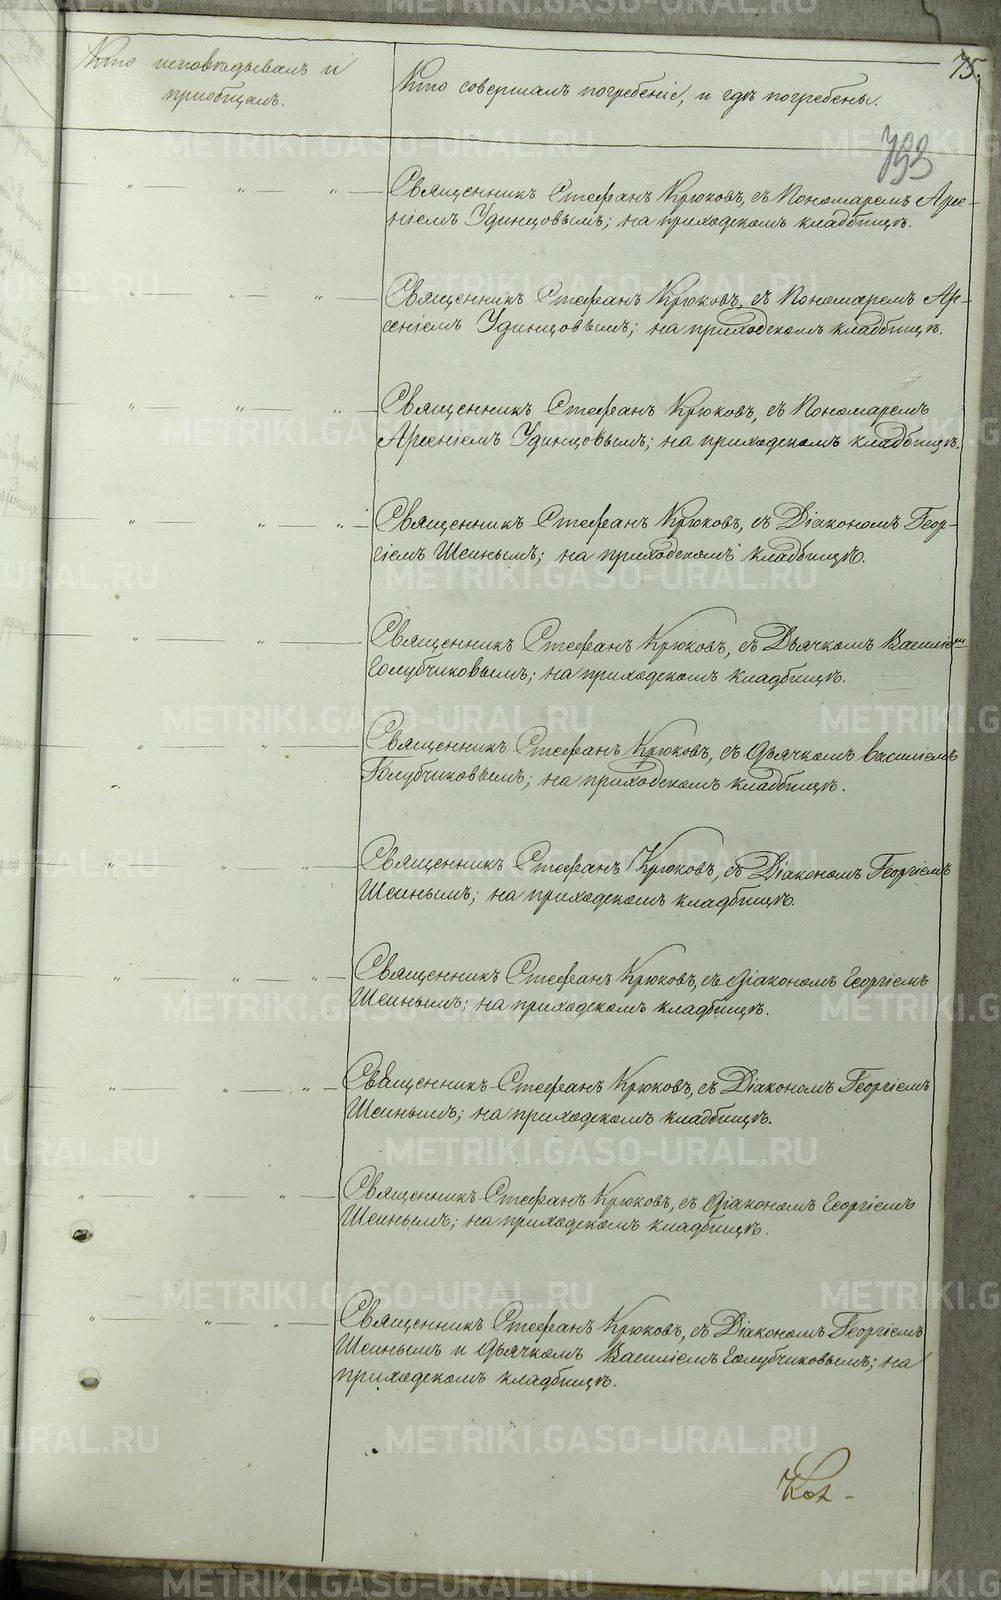 75.
Кто исповѣдывалъ и
приобщалъ.
Кто совершалъ погребеніе, и гдѣ погребены.
Священникъ Стефанъ Крюковъ, съ Пономаремъ Арсе-
ніемъ Удинцовымъ; на приходскомъ кладбищѣ.
Священникъ Стефанъ Крюковъ, съ Пономаремъ Ар-
сеніемъ Удинцовымъ; на приходскомъ кладбищѣ.
Священникъ Стефанъ Крюковъ, съ Пономаремъ
Арсеніемъ Удинцовымъ; на приходскомъ кладбищѣ.
Священникъ Стефанъ Крюковъ, съ Діакономъ Геор-
гіемъ Шеинымъ; на приходскомъ кладбищѣ.
Священникъ Стефанъ Крюковъ, съ Дьячкомъ Василіемъ
Голубчиковымъ; на приходскомъ кладбищѣ.
Священникъ Стефанъ Крюковъ, съ Дьячкомъ Василіемъ
Голубчиковымъ; на приходскомъ кладбищѣ.
Священникъ Стефанъ Крюковъ, съ Діакономъ Георгіемъ
Шеинымъ; на приходскомъ кладбищѣ.
Священникъ Стефанъ Крюковъ, съ Діакономъ Георгіемъ
Шеинымъ; на приходскомъ кладбищѣ.
Священникъ Стефанъ Крюковъ, съ Діакономъ Георгіемъ
Шеинымъ; на приходскомъ кладбищѣ.
Священникъ Стефанъ Крюковъ, съ Діакономъ Георгіемъ
Шеинымъ; на приходскомъ кладбищѣ.
Священникъ Стефанъ Крюковъ, съ Діакономъ Георгіемъ
Шеинымъ и Дьячкомъ Василіемъ Голубчиковымъ; на
приходскомъ кладбищѣ.
METRIKI.GASO-URAL.RU